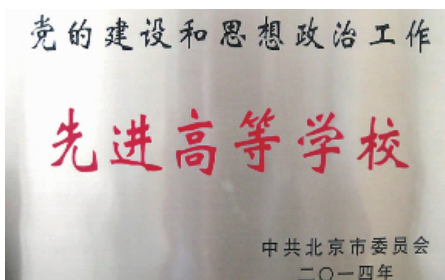 党的建设和思想政治工作
先进高等学校
中共北京市委员会
二〇一四年